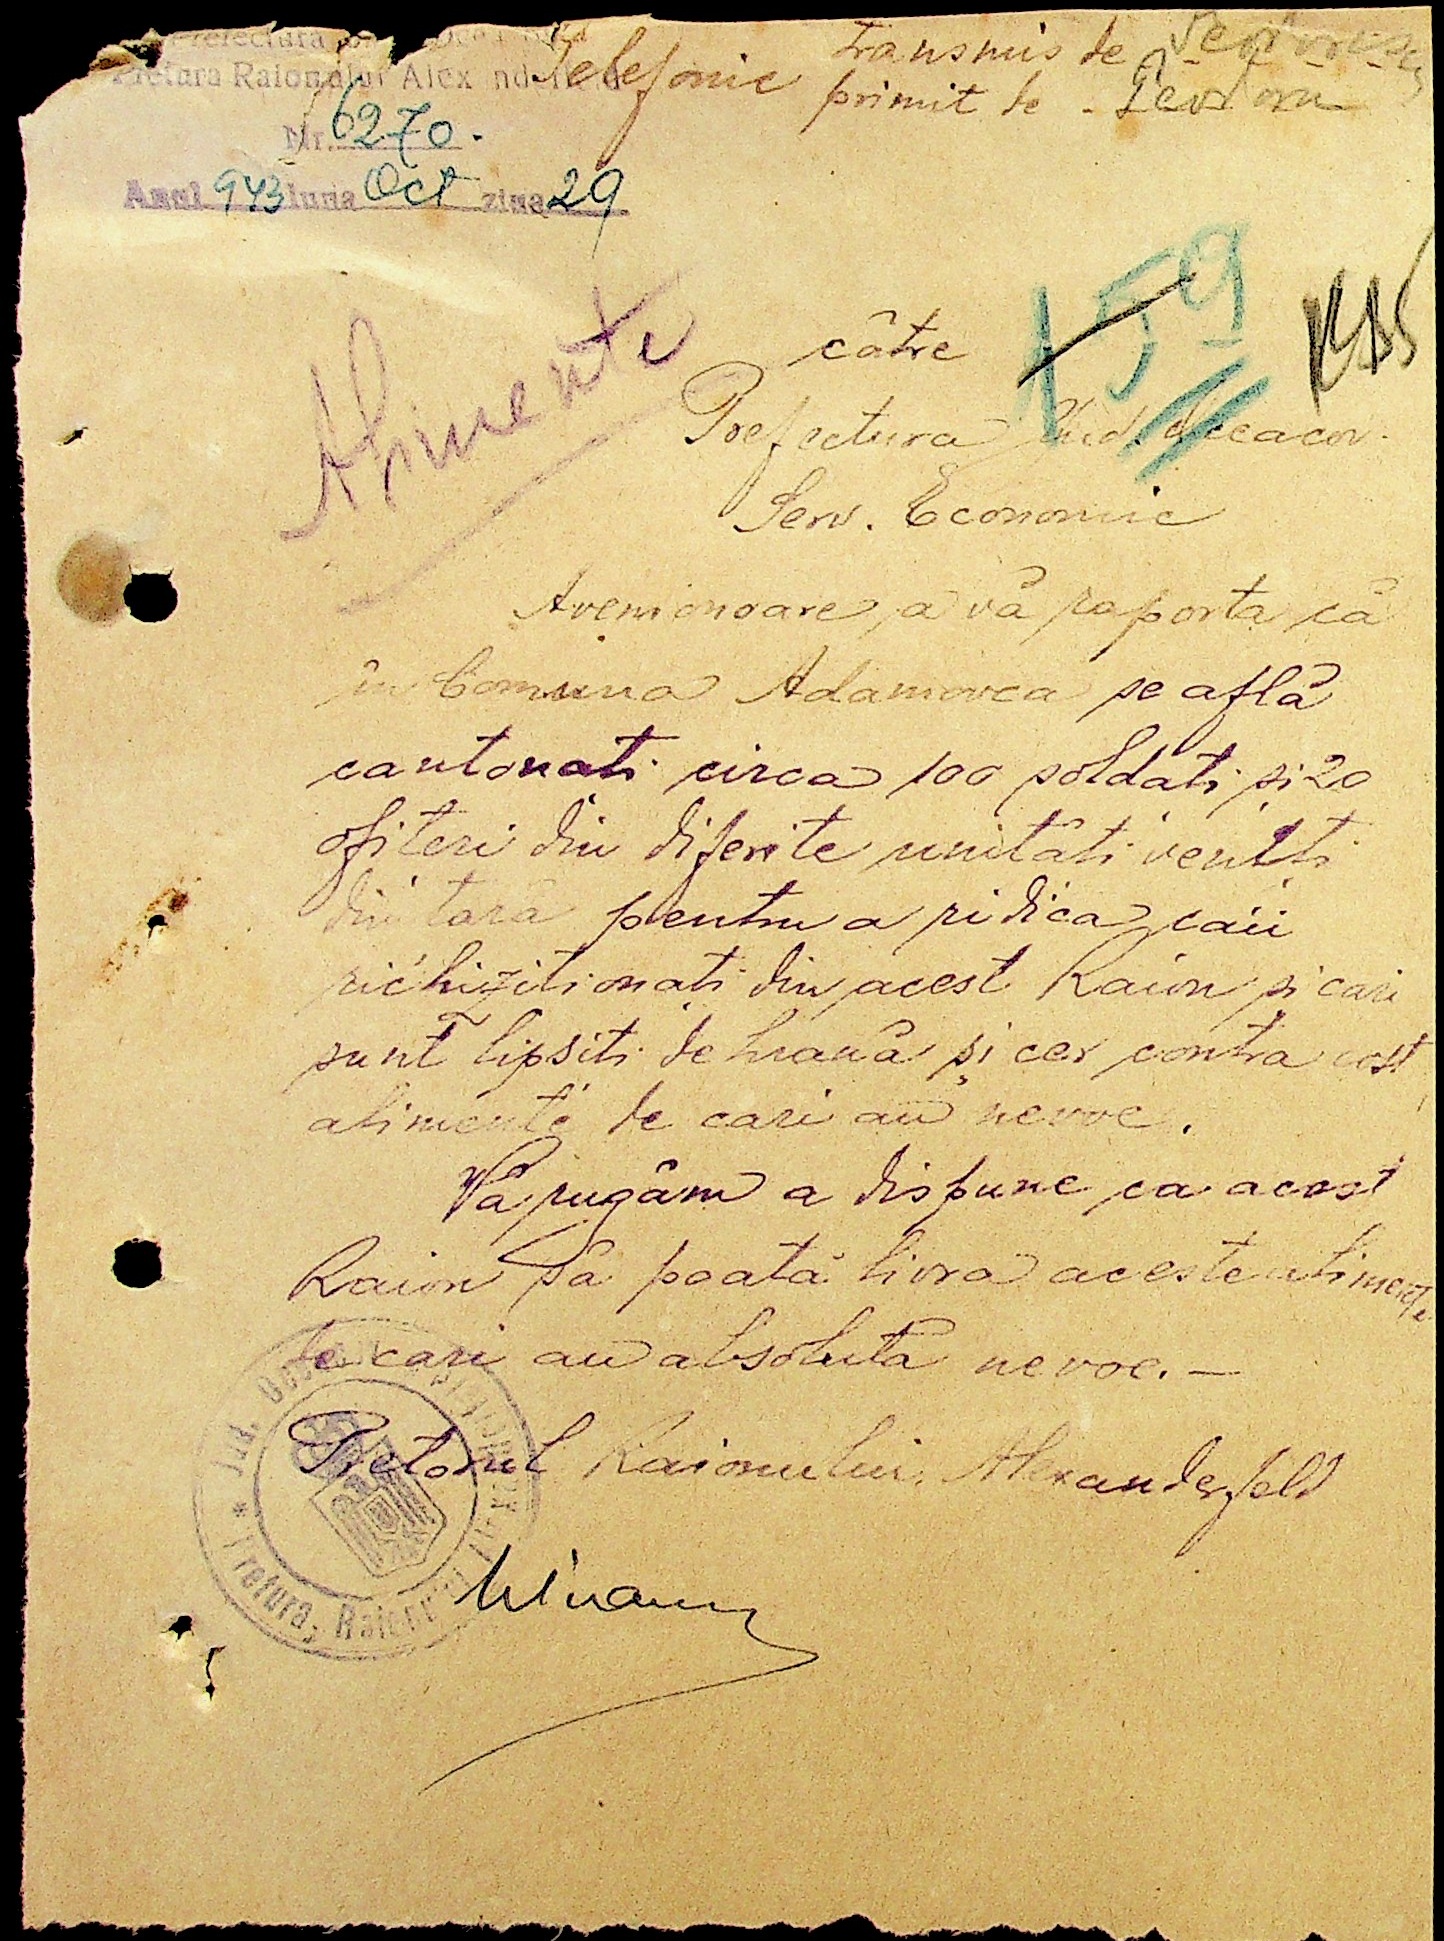 Prefectura Jud.
Pretura Raionului Alexanderfeld
Nr. 6270.
Anul 943 luna Oct ziua 29
Telefonic transmis de
primit de
Alimente
159
către
Prefectura Jud. Oceacov.
Serv. Economic
Avem onoare a vă raporta că
în Comuna Adamovca se află
cantonați circa 100 soldați și 20
ofițeri din diferite unități veniți
din țară pentru a ridica caii
richiziționați din acest Raion și cari
sunt lipsiți de hrană și cer contra cost
alimente de cari au nevoe.
Vă rugăm a dispune ca acest
Raion să poată livra aceste alimente
de cari au absolută nevoe. —
Pretorul Raionului Alexanderfeld
Jud. Oceacov
* Pretura Raionului